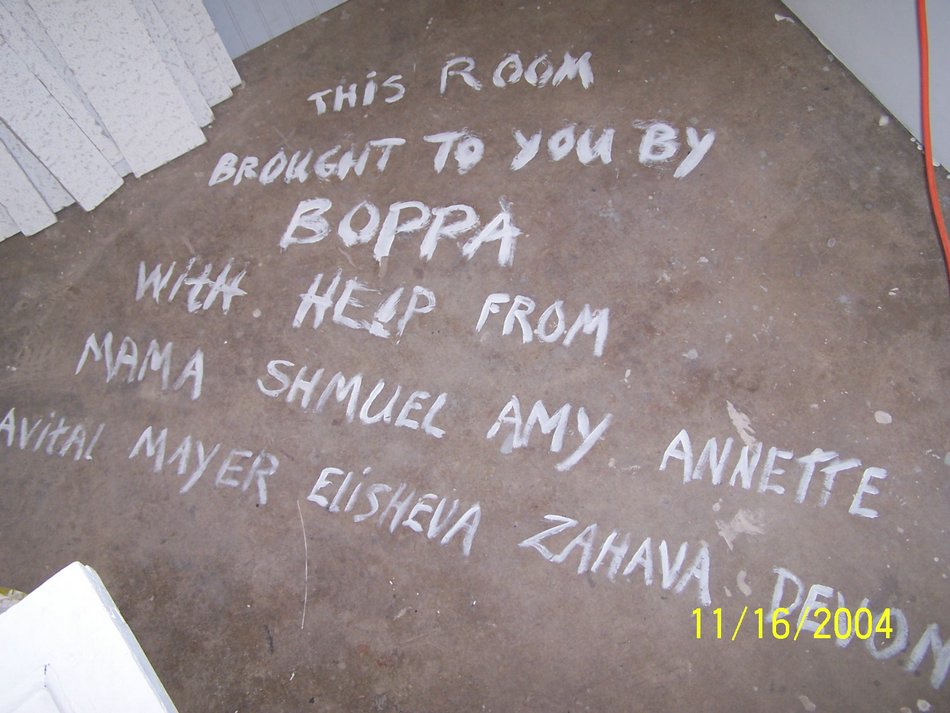 THIS ROOM
BROUGHT TO YOU BY
BOPPA
WITH HELP FROM
MAMA SHMUEL AMY ANNETTE
AVITAL MAYER ELISHEVA ZAHAVA DEVON
11/16/2004